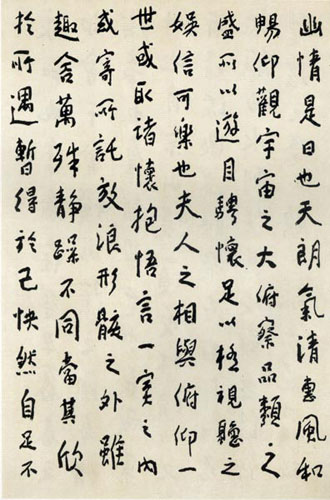 幽情是日也天朗氣清惠風和
暢仰觀宇宙之大俯察品類之
盛所以遊目騁懷足以極視聽之
娛信可樂也夫人之相與俯仰一
世或取諸懷抱悟言一室之內
或寄所託放浪形骸之外雖
趣舍萬殊靜躁不同當其欣
於所遇暫得於己快然自足不